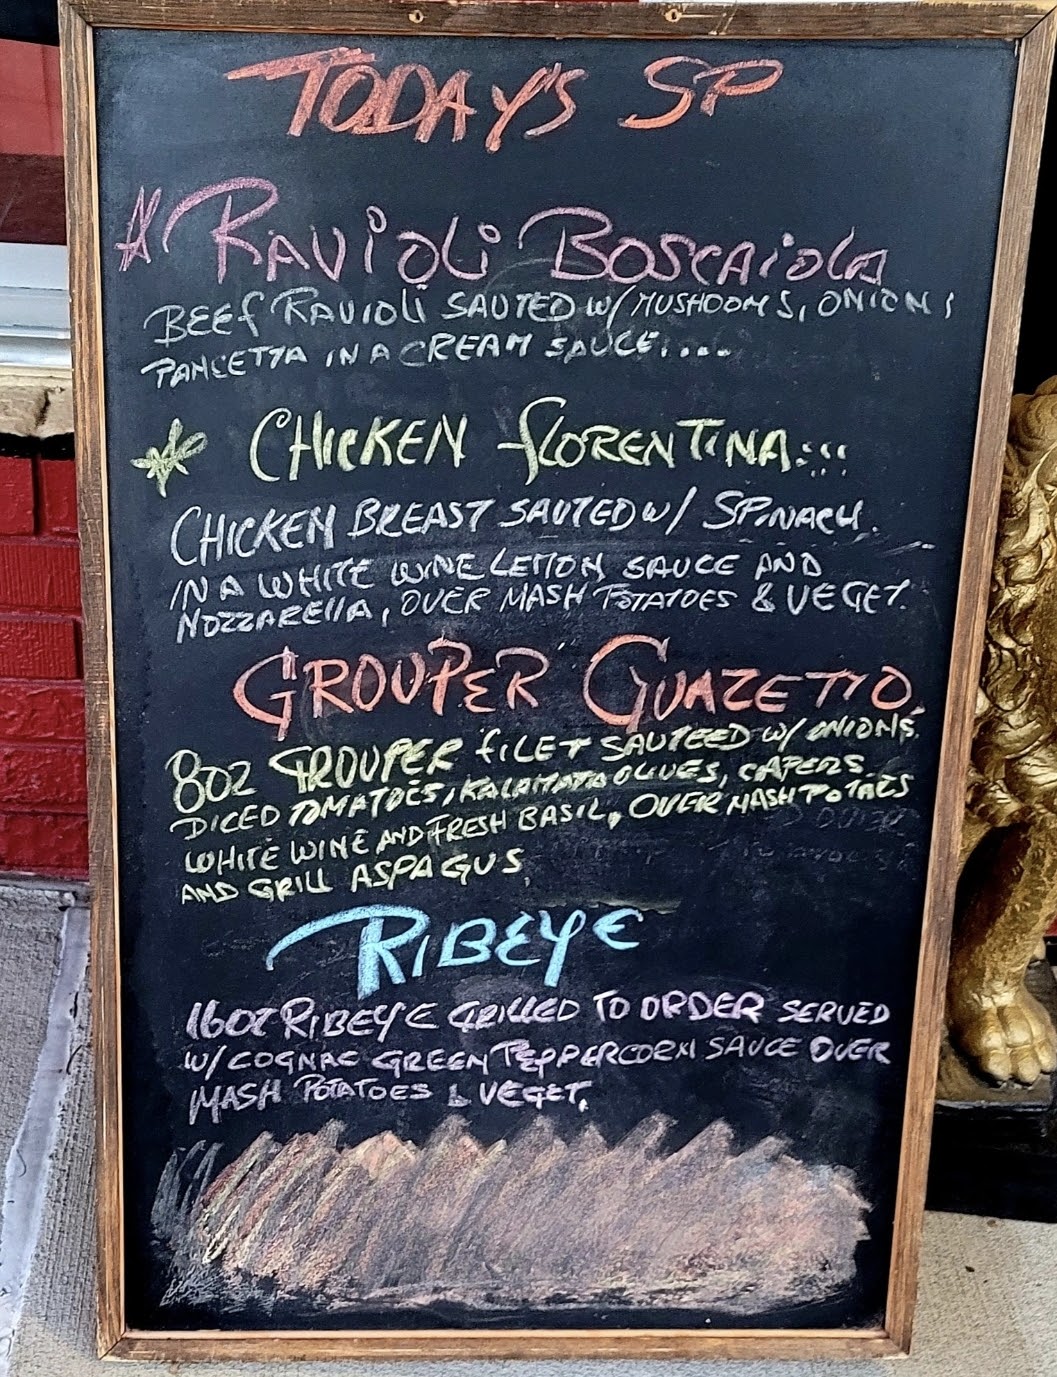 TODAY'S SP
RAVIOLI BOSCAIOLA
BEEF RAVIOLI SAUTED W/ MUSHOOMS, ONIONS
PANCETTA IN A CREAM SAUCE....
CHICKEN FLORENTINA...
CHICKEN BREAST SAUTED W/ SPINACH.
IN A WHITE WINE LEMON SAUCE AND
MOZZARELLA, OVER MASH POTATOES & VEGET.
GROUPER GUAZETTO.
8OZ GROUPER FILET SAUTEED W/ ONIONS,
DICED TOMATOES, KALAMATA OLIVES, CAPERS
WHITE WINE AND FRESH BASIL, OVER MASH POTATOES
AND GRILL ASPAGUS
RIBEYE
16OZ RIBEYE GRILLED TO ORDER SERVED
W/ COGNAC GREEN PEPPERCORN SAUCE OVER
MASH POTATOES & VEGET.